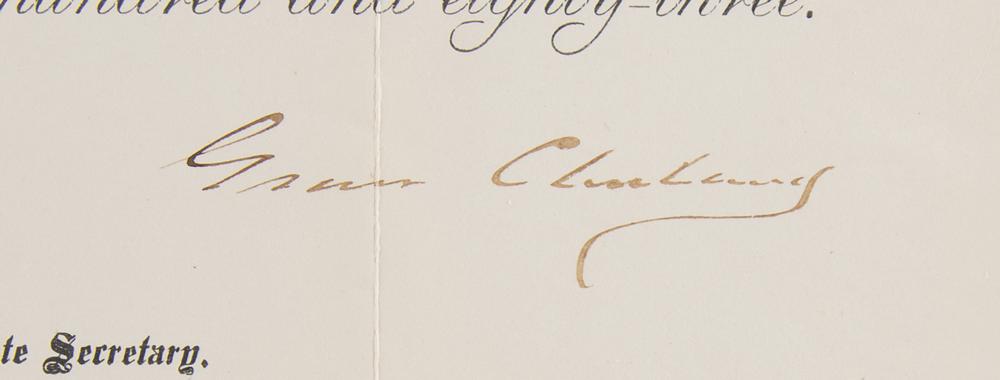 hundred and eighty-three.
Grover Cleveland
te Secretary.